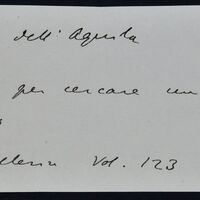 dell'Aquila
per cercare un
Vol. 123